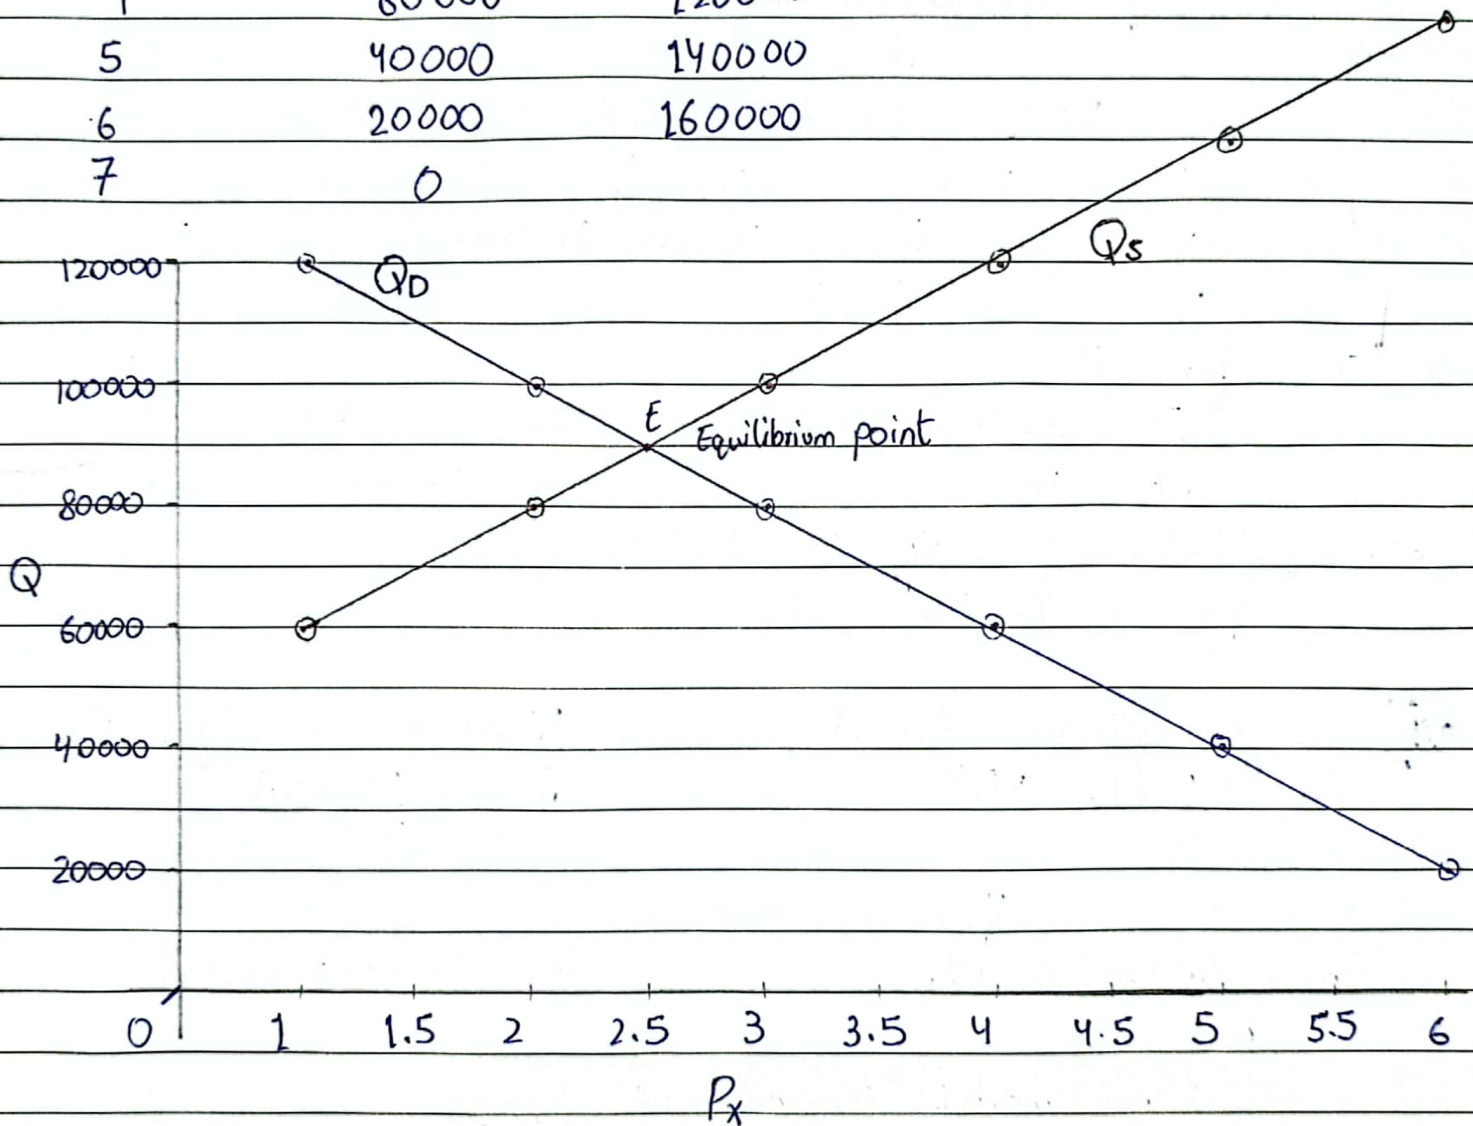 5 40000 140000
6 20000 160000
7 0
120000
QD
QS
100000
E
Equilibrium point
80000
Q
60000
40000
20000
0 1 1.5 2 2.5 3 3.5 4 4.5 5 5.5 6
Px